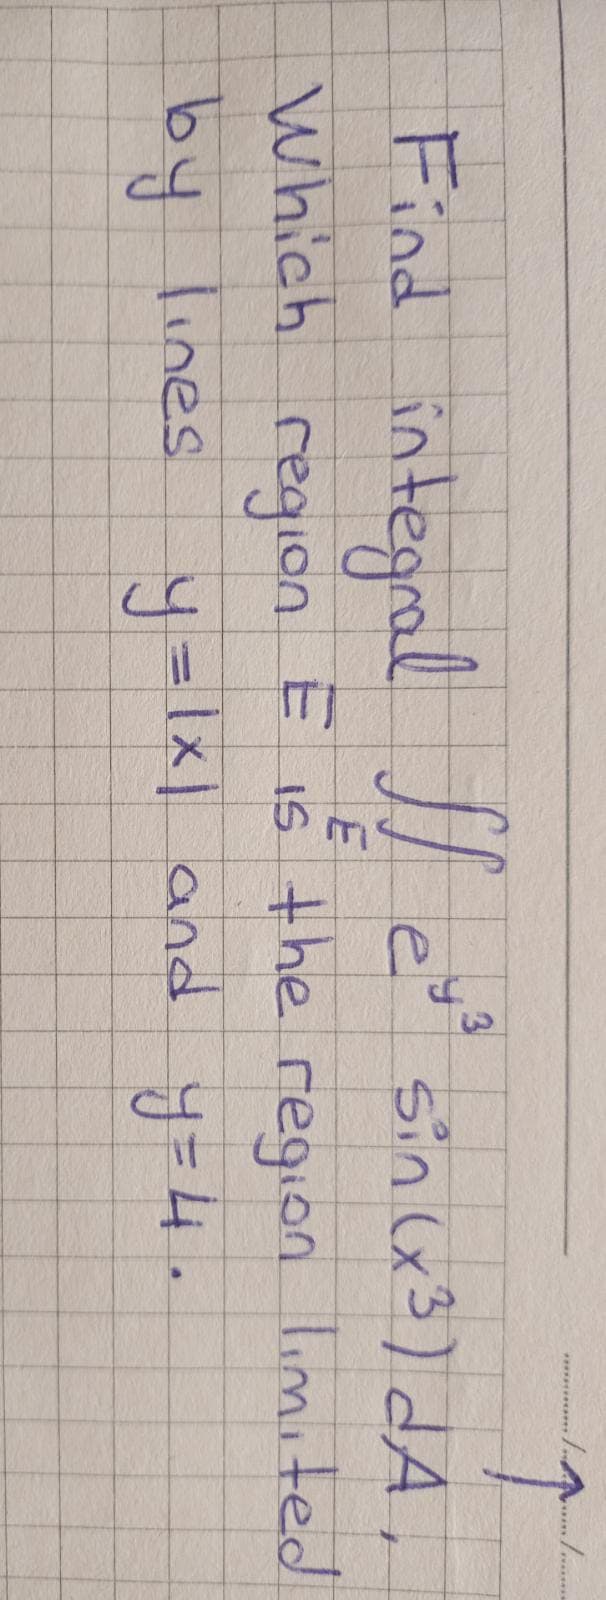 Find integral ∬_E e^{y^3} sin(x^3) dA,
Which region E is the region limited
by lines y=|x| and y=4.